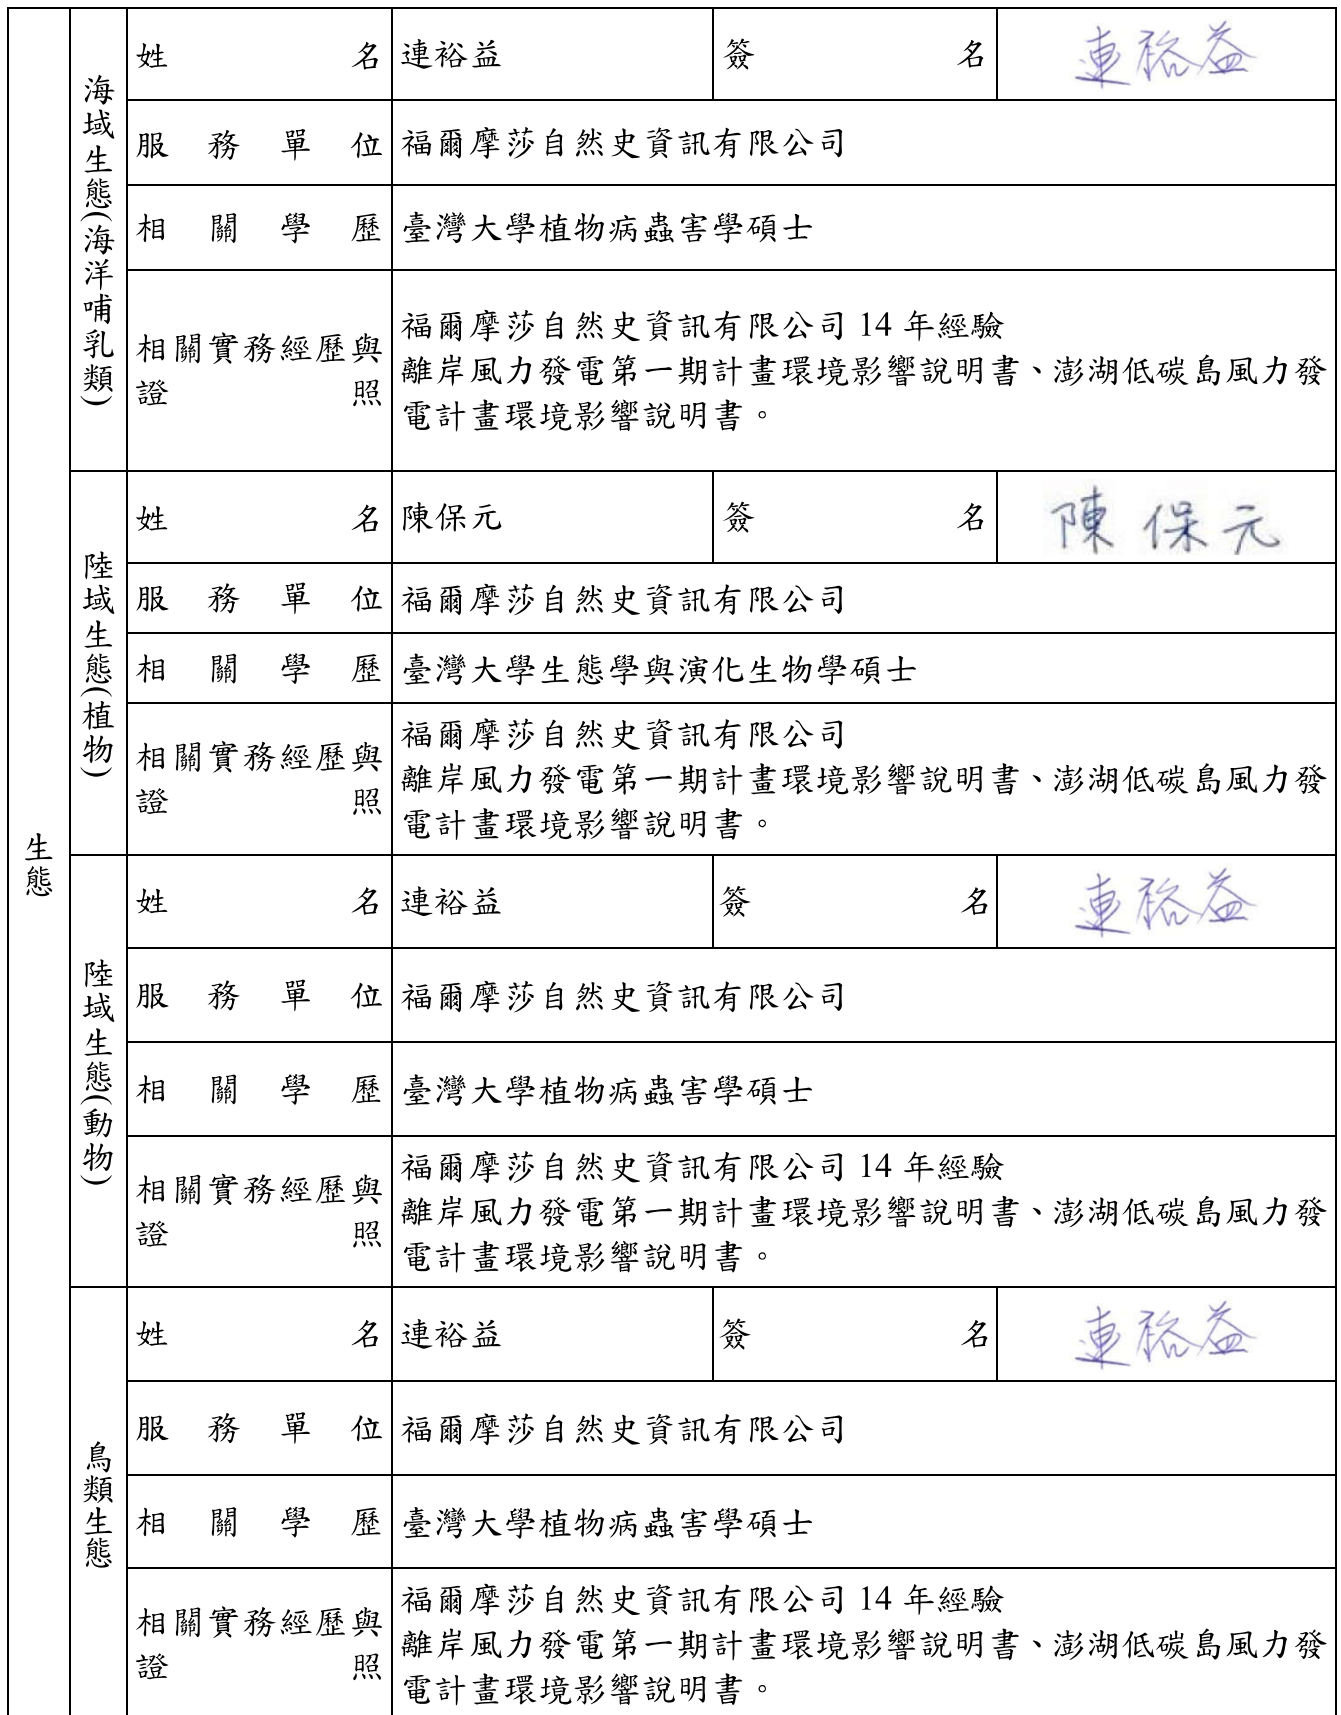 生態
海域生態(海洋哺乳類)
姓名 連裕益 簽名 連裕益
服務單位 福爾摩莎自然史資訊有限公司
相關學歷 臺灣大學植物病蟲害學碩士
相關實務經歷與證照
福爾摩莎自然史資訊有限公司 14 年經驗
離岸風力發電第一期計畫環境影響說明書、澎湖低碳島風力發
電計畫環境影響說明書。
陸域生態(植物)
姓名 陳保元 簽名 陳保元
服務單位 福爾摩莎自然史資訊有限公司
相關學歷 臺灣大學生態學與演化生物學碩士
相關實務經歷與證照
福爾摩莎自然史資訊有限公司
離岸風力發電第一期計畫環境影響說明書、澎湖低碳島風力發
電計畫環境影響說明書。
陸域生態(動物)
姓名 連裕益 簽名 連裕益
服務單位 福爾摩莎自然史資訊有限公司
相關學歷 臺灣大學植物病蟲害學碩士
相關實務經歷與證照
福爾摩莎自然史資訊有限公司 14 年經驗
離岸風力發電第一期計畫環境影響說明書、澎湖低碳島風力發
電計畫環境影響說明書。
鳥類生態
姓名 連裕益 簽名 連裕益
服務單位 福爾摩莎自然史資訊有限公司
相關學歷 臺灣大學植物病蟲害學碩士
相關實務經歷與證照
福爾摩莎自然史資訊有限公司 14 年經驗
離岸風力發電第一期計畫環境影響說明書、澎湖低碳島風力發
電計畫環境影響說明書。